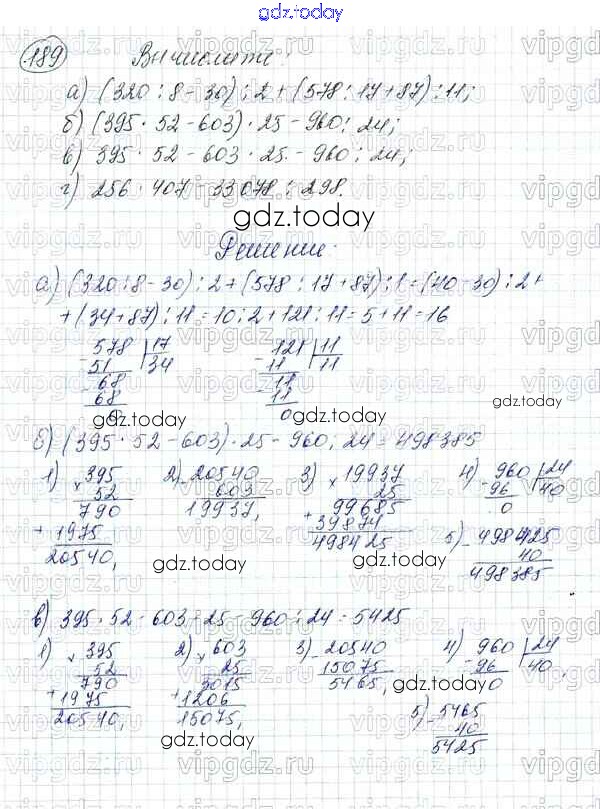 gdz.today
189 Вычислите:
а) (320 : 8 - 30) : 2 + (578 : 17 + 87) : 11;
б) (395 · 52 - 603) · 25 - 960 : 24;
в) 395 · 52 - 603 · 25 - 960 : 24;
г) 256 · 407 - 33078 : 298.
gdz.today
Решение:
а) (320 : 8 - 30) : 2 + (578 : 17 + 87) : 1 = (40 - 30) : 2 +
+ (34 + 87) : 11 = 10 : 2 + 121 : 11 = 5 + 11 = 16
- 578 17 - 121 11
51 34 11 11
- 68 - 11
68 11
0 0
gdz.today gdz.today gdz.today
б) (395 · 52 - 603) · 25 - 960 : 24 = 498385
1) × 395 2) - 20540 3) × 19937 4) - 960 24
52 603 25 96 40
790 19937, 99685 0
+ 1975 + 39874 5) - 498425
20540, 498425 40
498385
gdz.today gdz.today
в) 395 · 52 - 603 · 25 - 960 : 24 = 5425
1) × 395 2) × 603 3) - 20540 4) - 960 24
52 25 15075 96 40
790 3015 5465, 0
+ 1975 + 1206 5) - 5465
20540, 15075, 40
5425
gdz.today gdz.today
gdz.today
vipgdz.ru